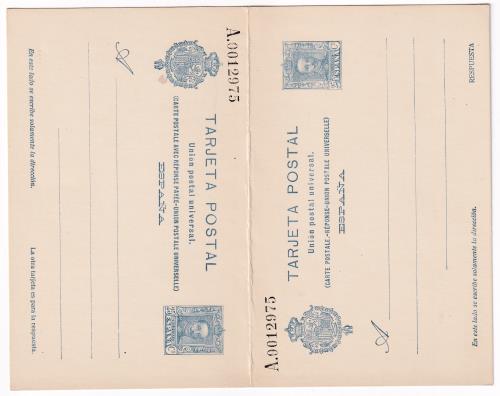 A.0012975
TARJETA POSTAL
Unión postal universal.
(CARTE POSTALE AVEC RÉPONSE PAYÉE-UNION POSTALE UNIVERSELLE)
ESPAÑA
ESPAÑA
25 C 25
A
En este lado se escribe solamente la dirección.
La otra tarjeta es para la respuesta.
A.0012975
TARJETA POSTAL
Unión postal universal.
(CARTE POSTALE-RÉPONSE-UNION POSTALE UNIVERSELLE)
ESPAÑA
ESPAÑA
A
RESPUESTA
En este lado se escribe solamente la dirección.